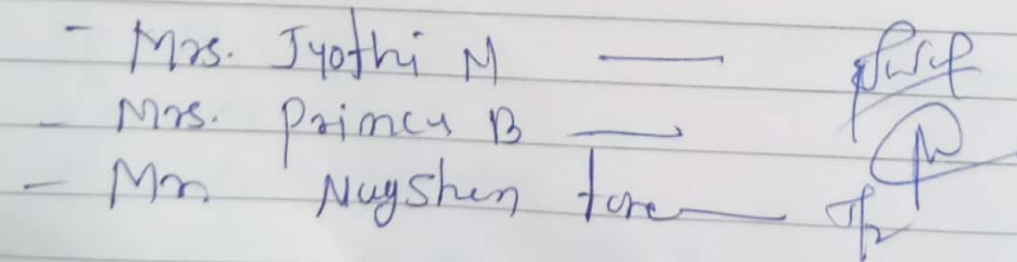 - Mrs. Jyothi M —
- Mrs. Princy B —
- Mr Nagshen tore —